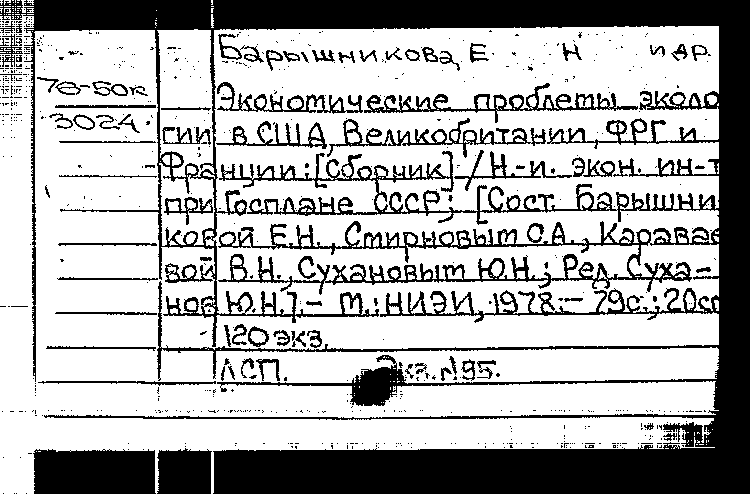 Барышникова, Е Н и др.
78-50к
3024.
Экономические проблемы эколо
гии в США, Великобритании, ФРГ и
Франции: [Сборник] / Н.-и. экон. ин-т
при Госплане СССР; [Сост. Барышни
ковой Е.Н., Смирновым О.А., Каравае
вой В.Н., Сухановым Ю.Н.; Ред. Суха-
нов Ю.Н.].- М.: НИЭИ, 1978.- 79с.; 20см
120 экз.
ДСП. Экз. №95.